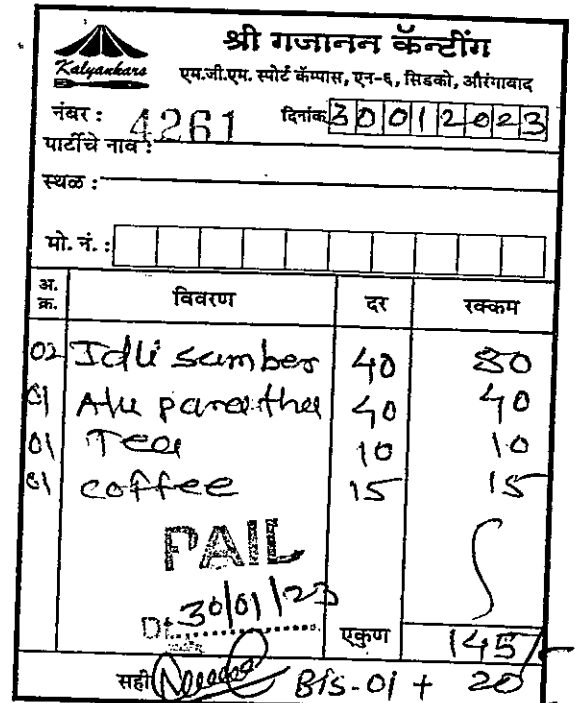 श्री गजानन कॅन्टींग
Kalyankars
एम.जी.एम. स्पोर्ट कॅम्पास, एन-६, सिडको, औरंगाबाद
नंबर : 4261 दिनांक 30012023
पार्टीचे नाव :
स्थळ :
मो. नं. :
अ. क्र. विवरण दर रक्कम
02 Idli samber 40 80
01 Alu paratha 40 40
01 Tea 10 10
01 coffee 15 15
PAID
Dt. 30/01/23
एकुण 145/-
सही BIS-01 + 20